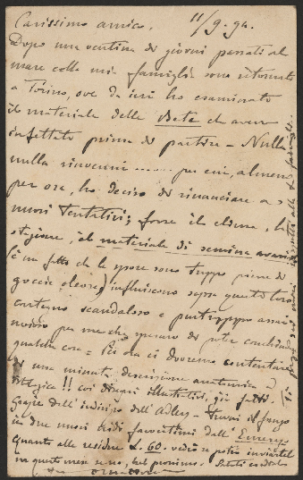 Carissimo amico. 11/9.94.
Dopo una ventina di giorni passati al
mare colla mia famiglia sono ritornato
a Torino, ove da ieri ho esaminato
il materiale delle Bete che avevo
infettato prima di partire - Nulla
nulla rinvenni ...... per cui, almeno
per ora, ho deciso di rinunciare a
nuovi tentativi; forse il clima, la
stagione, il materiale di semina
è un fatto che le spore sono troppo piene di
goccie oleose) influiscono sopra questo loro
contegno scandaloso e purtroppo assai
per me che speravo di poter concludere
qualche cosa = Per ora ci dovremo contentare
di una minuta descrizione anatomica
!! coi disegni illustrativi, già fatti.
Grazie dell'indirizzo dell'
in due nuovi favoritimi dall'
quanto alle residue £. 60. vedrò se potrò inviartele
in questo mese se no, nel prossimo. Saluti cordiali